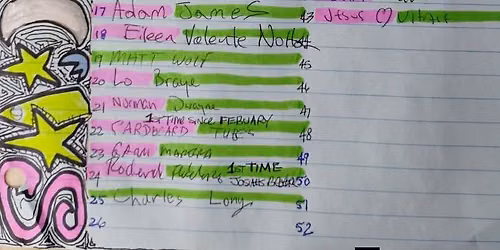 17 Adam James
18 Eileen Valente
19 Matt Wolf
20 Lo Braye
21 Norman Dwayne
1ST TIME SINCE FEBUARY
22 CARDBOARD TUBES
23
24 Roderick 1ST TIME
25 Charles Long
26
43 Jesus
45
46
47
48
49
50
51
52